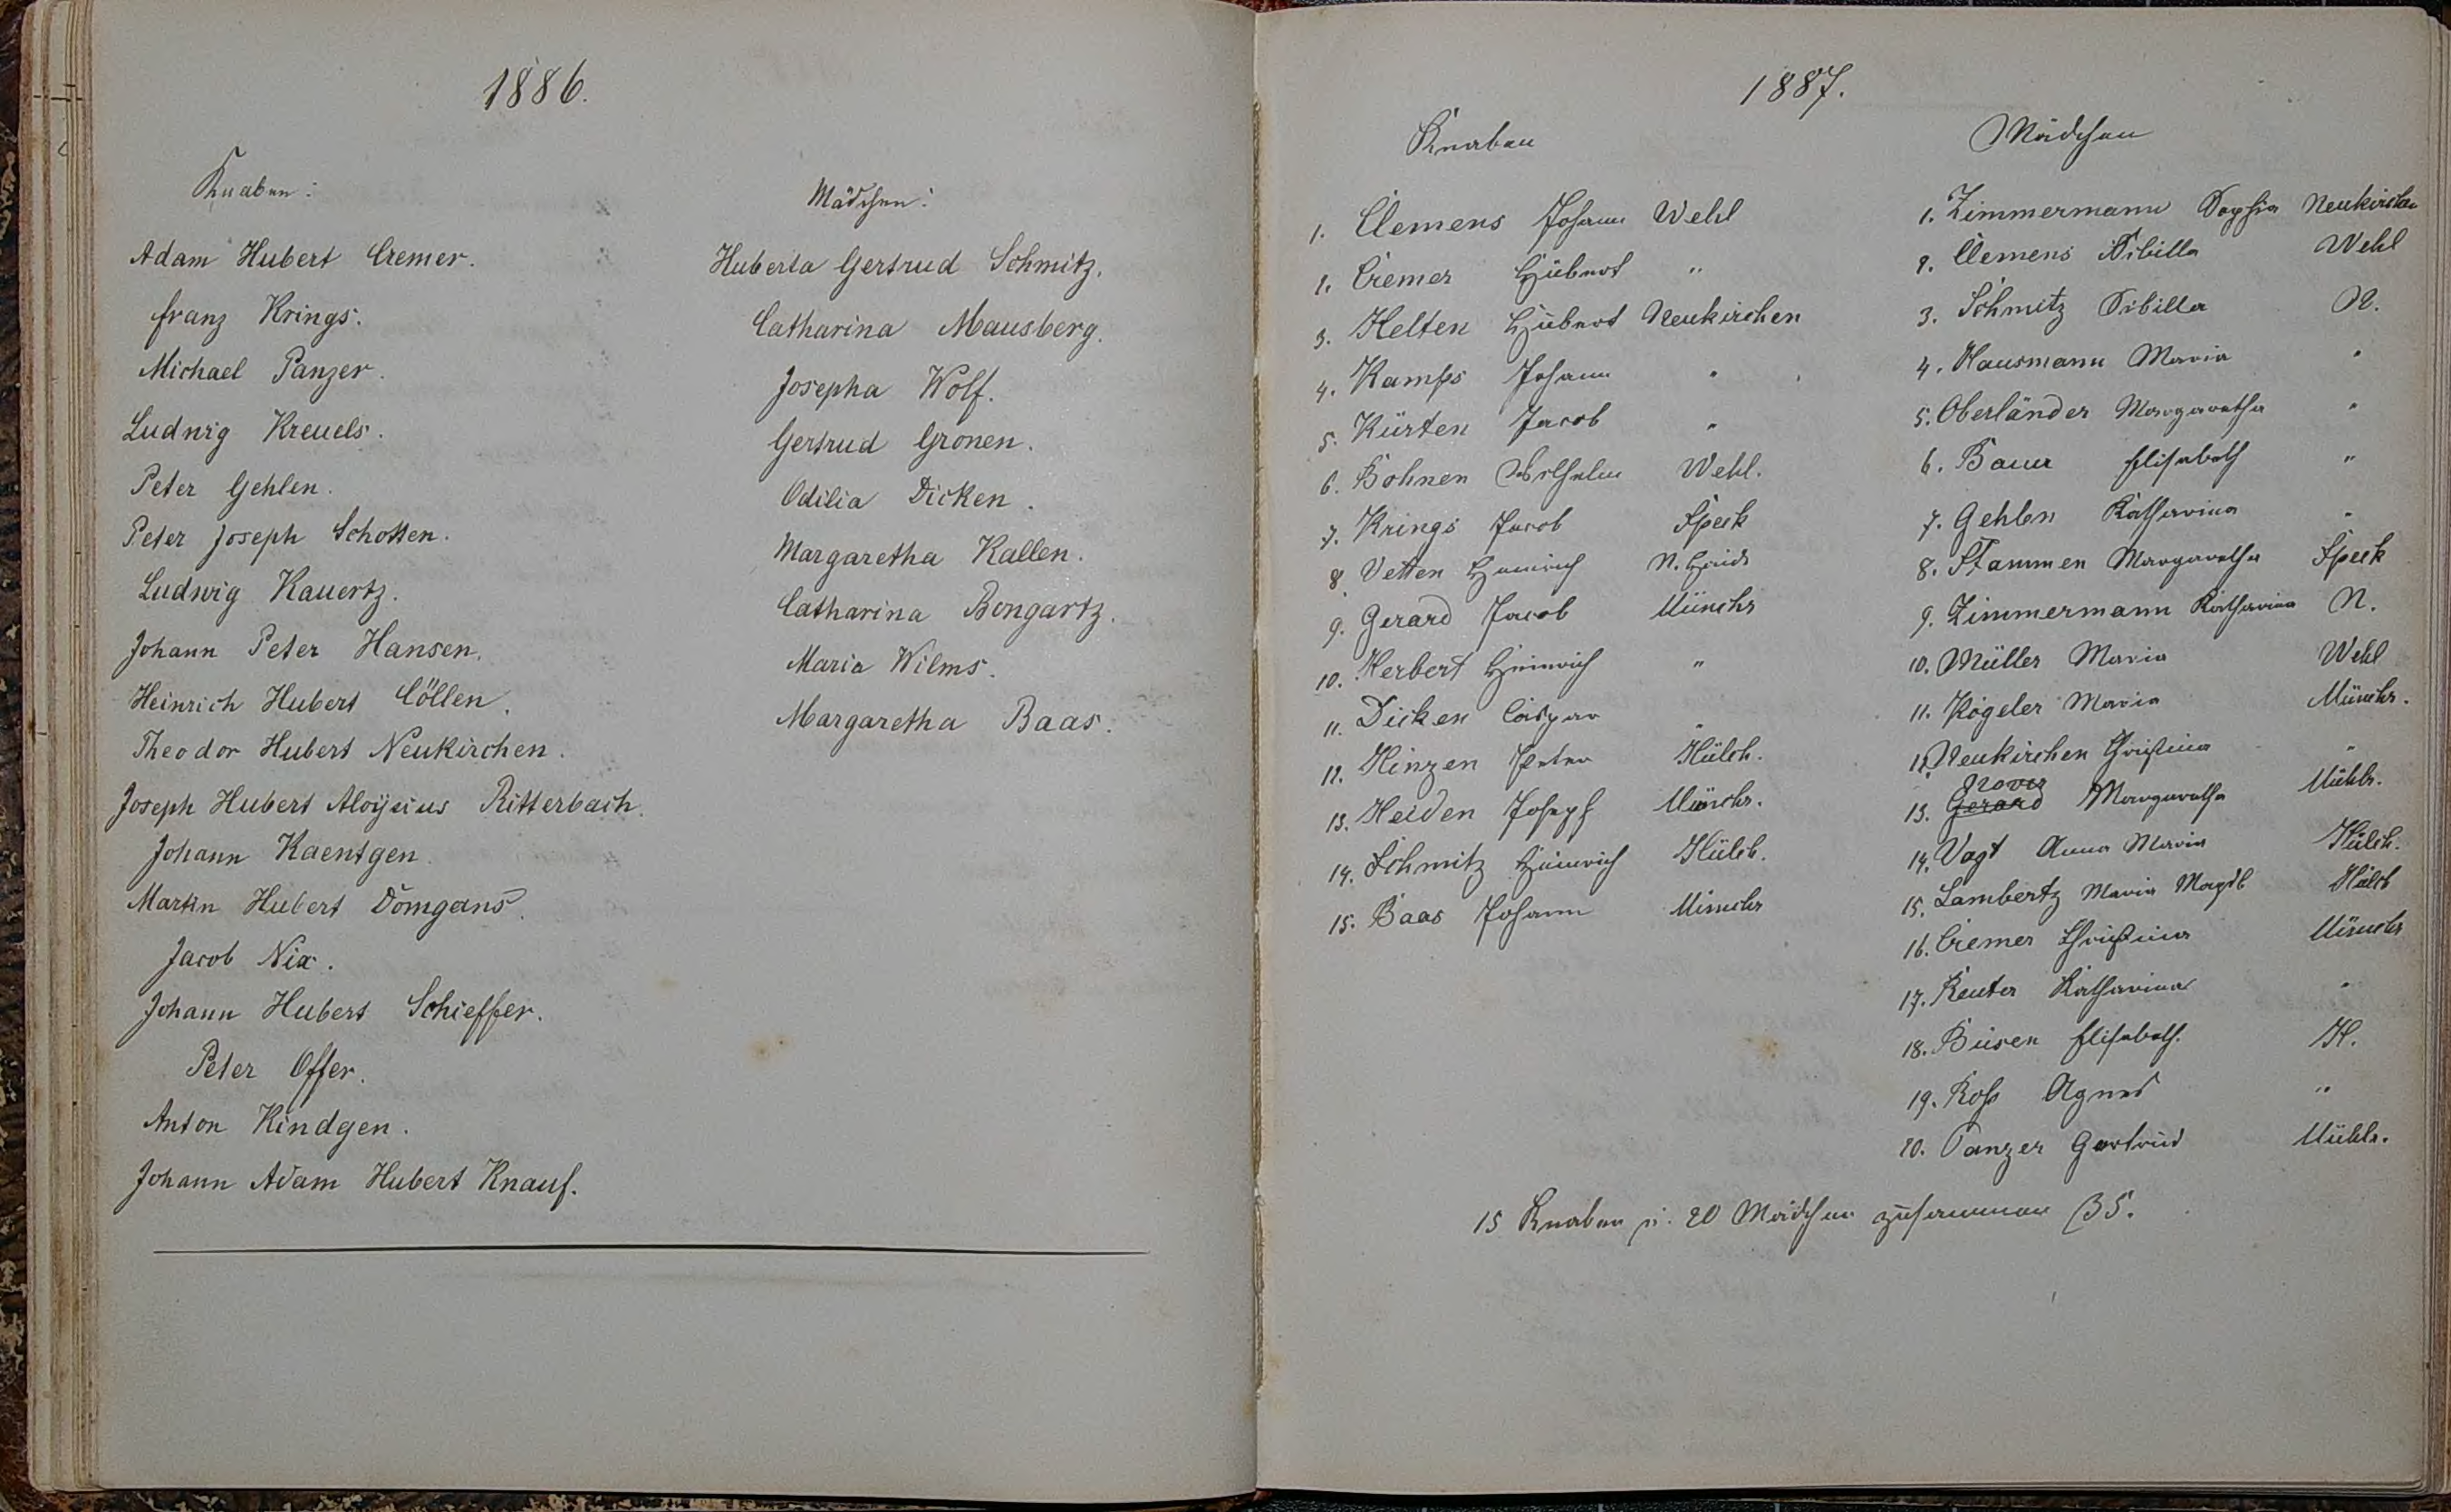 1886.
Knaben:
Adam Hubert Cremer.
Franz Krings.
Michael Panzer.
Ludwig Kreuels.
Peter Gehlen.
Peter Joseph Schotten.
Ludwig Kauertz.
Johann Peter Hansen.
Heinrich Hubert Cöllen.
Theodor Hubert Neukirchen.
Joseph Hubert Aloysius Ritterbach.
Johann Kaentgen.
Martin Hubert Domgans.
Jacob Nix.
Johann Hubert Schieffer.
Peter Offer.
Anton Kindgen.
Johann Adam Hubert Knauf.
Mädchen:
Huberta Gertrud Schmitz.
Catharina Mausberg.
Josepha Wolf.
Gertrud Gronen.
Odilia Dicken.
Margaretha Kallen.
Catharina Bongartz.
Maria Wilms.
Margaretha Baas.
1887.
Knaben
1. Clemens Johann Wehl
2. Cremer Hubert "
3. Helten Hubert Neukirchen
4. Kamps Johann "
5. Kürten Jacob "
6. Bohnen Wilhelm Wehl.
7. Krings Jacob Speck
8. Vetten Heinrich N.
9. Gerard Jacob Münchr
10. Herbert Heinrich "
11. Dicken Caspar "
12. Hinzen Peter Hülch.
13. Heiden Joseph Münchr.
14. Schmitz Heinrich Hülch.
15. Baas Johann Münchr
Mädchen
1. Zimmermann Sophia Neukirchen
2. Clemens Sibilla Wehl
3. Schmitz Sibilla N.
4. Hausmann Maria "
5. Oberländer Margaretha "
6. Baur Elisabeth "
7. Gehlen Katharina "
8. Stammen Margaretha Speck
9. Zimmermann Katharina N.
10. Müller Maria Wehl
11. Kögeler Maria Münchr.
12. Neukirchen Christina "
13. Gerard Nover Margaretha Mühlr.
14. Vogt Anna Maria Hülch.
15. Lambertz Maria Magdl Hülch
16. Cremer Christina Münchr
17. Reuter Katharina "
18. Büsen Elisabeth. H.
19. Koss Agnes "
20. Panzer Gertrud Mühlr.
15 Knaben u. 20 Mädchen zusammen 35.